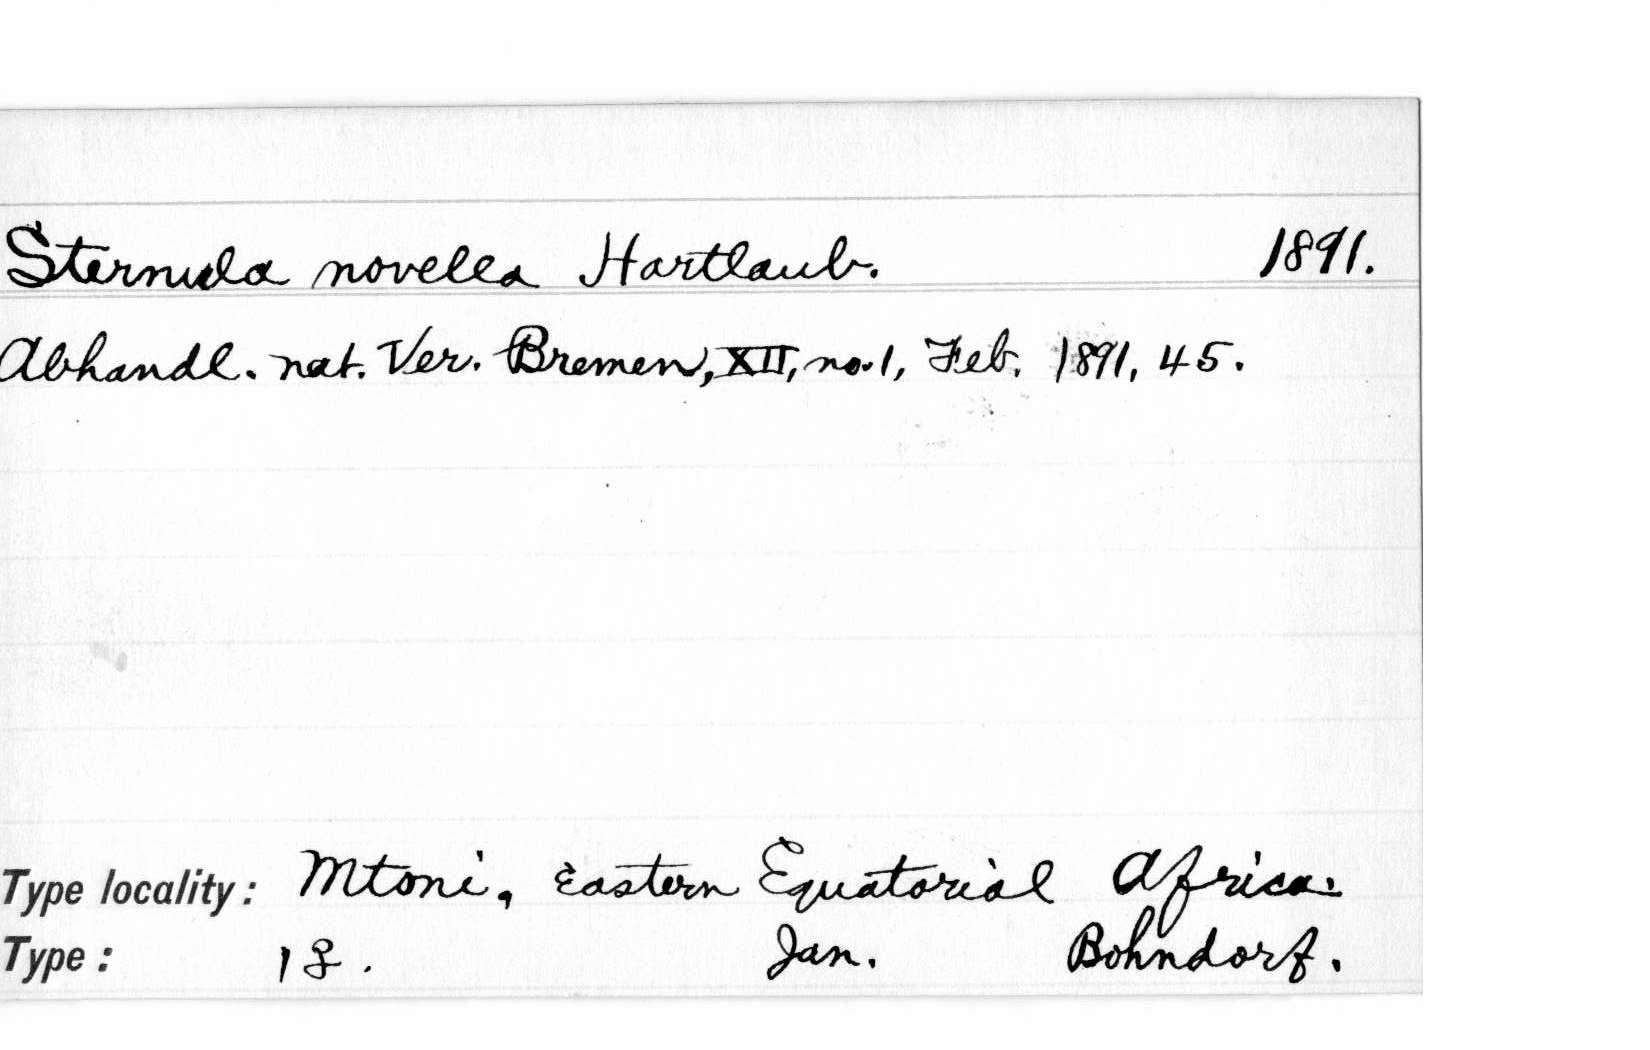 Sternula novella Hartlaub. 1891.
Abhandl. nat. Ver. Bremen, XII, no. 1, Feb. 1891, 45.
Type locality: Mtoni, Eastern Equatorial Africa.
Type: 1 ♀. Jan. Bohndorf.